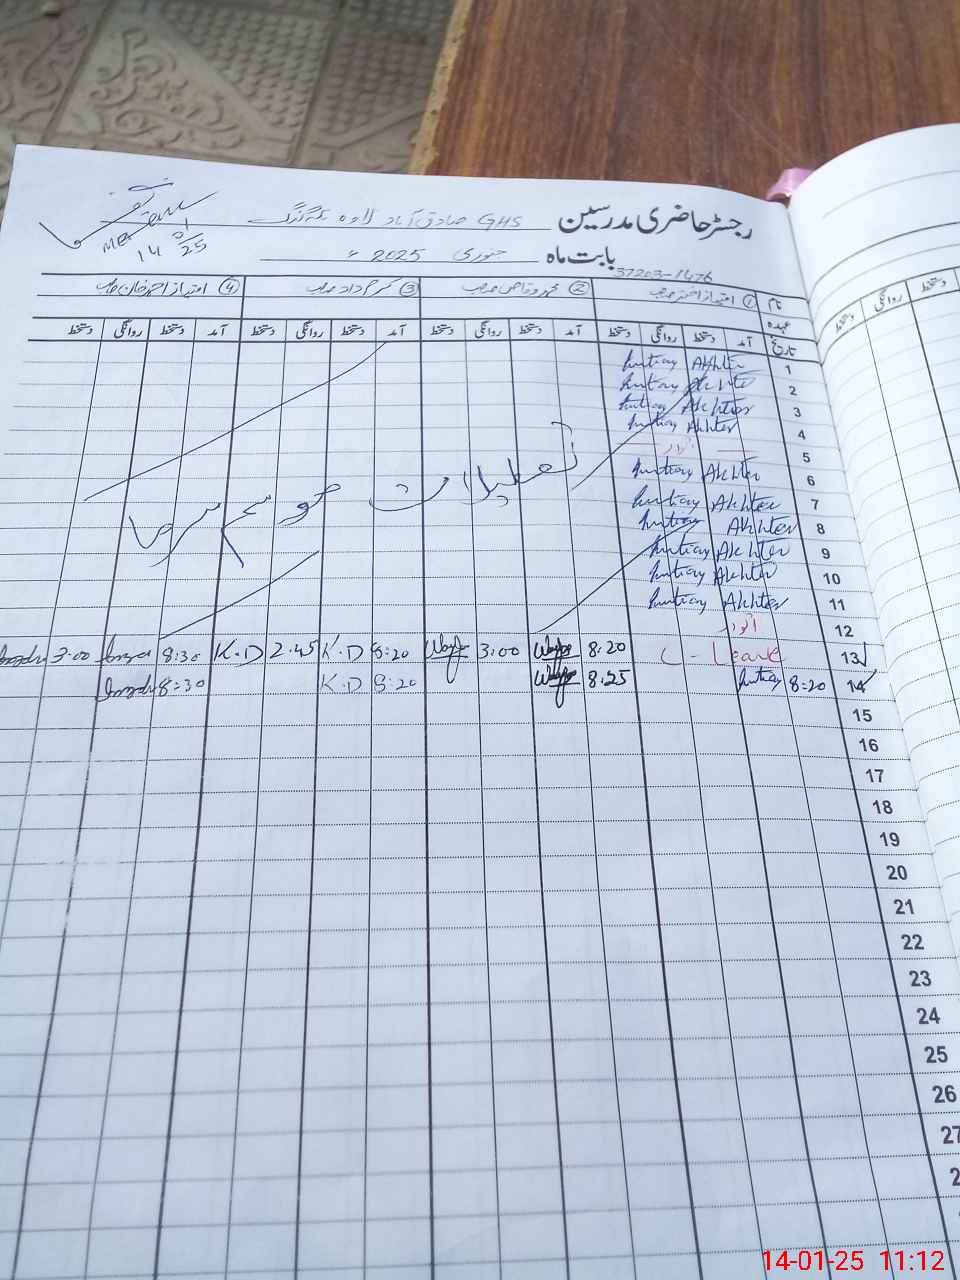 رجسٹر حاضری مدرسین GHS صادق آباد لاوہ
14 01/25
بابت ماہ جنوری 2025ء
37203-1476
نام ① امتیاز اختر صاحب ② محمد وقاص صاحب ③ کرم داد صاحب ④ امتیاز احمد خان صاحب
عہدہ
تاریخ آمد دستخط روانگی دستخط آمد دستخط روانگی دستخط آمد دستخط روانگی دستخط آمد دستخط روانگی دستخط
دستخط روانگی دستخط
1 Imtiaz Akhter
2 Imtiaz Akhter
3 Imtiaz Akhter
4 Imtiaz Akhter
5 اتوار
6 Imtiaz Akhter
تعطیلات موسم سرما
7 Imtiaz Akhter
8 Imtiaz Akhter
9 Imtiaz Akhter
10 Imtiaz Akhter
11 Imtiaz Akhter
12 اتوار
13 C - Leave 8:20 3:00 8:20 K.D 2:45 K.D 8:30 3:00
14 8:20 Imtiaz 8:25 8:20 K.D 8:30
15
16
17
18
19
20
21
22
23
24
25
26
27
14-01-25 11:12